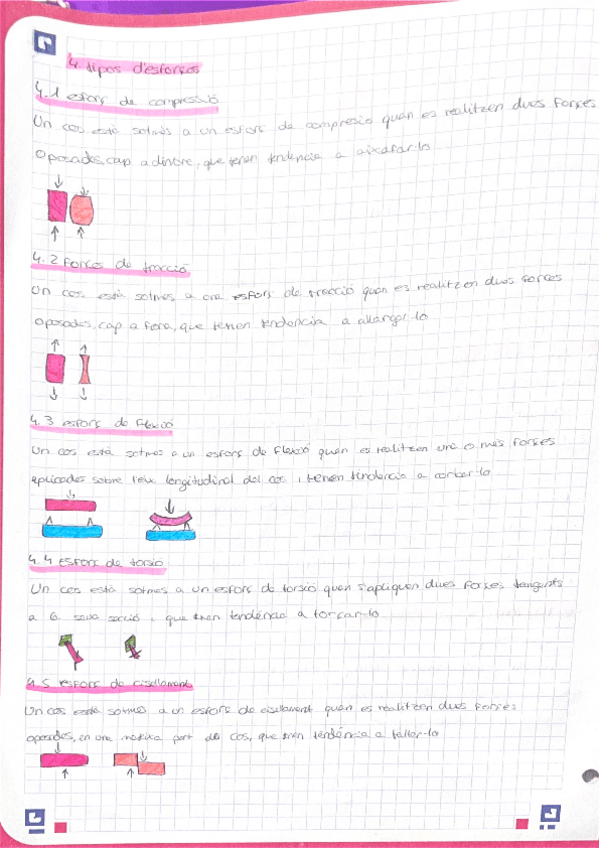 4. tipos d'esforços
4.1 esforç de compressió
Un cos està sotmès a un esforç de compresio quan es realitzen dues forçes
oposades, cap a dintre, que tenen tendencia a aixafar-lo
4.2 Forces de tracció
Un cos està sotmes a un esforç de tracció quan es realitzen dues forces
oposades, cap a fora, que tenen tendencia a allargar-lo
4.3 esforç de flexió
Un cos està sotmes a un esforç de flexió quan es realitzen una o mes forçes
aplicades sobre l'eix longitudinal del cos i tenen tendencia a corbar-lo
4.4 Esforç de torsio
Un cos està sotmes a un esforç de torsió quan s'apliquen dues forçes tangents
a la seva secció i que tenen tendència a torçar-lo
4.5 esforç de cisellament
Un cos està sotmes a un esforç de cisellament quan es realitzen dues forçes
oposades, en una mateixa part del cos, que tenen tendència a tallar-lo